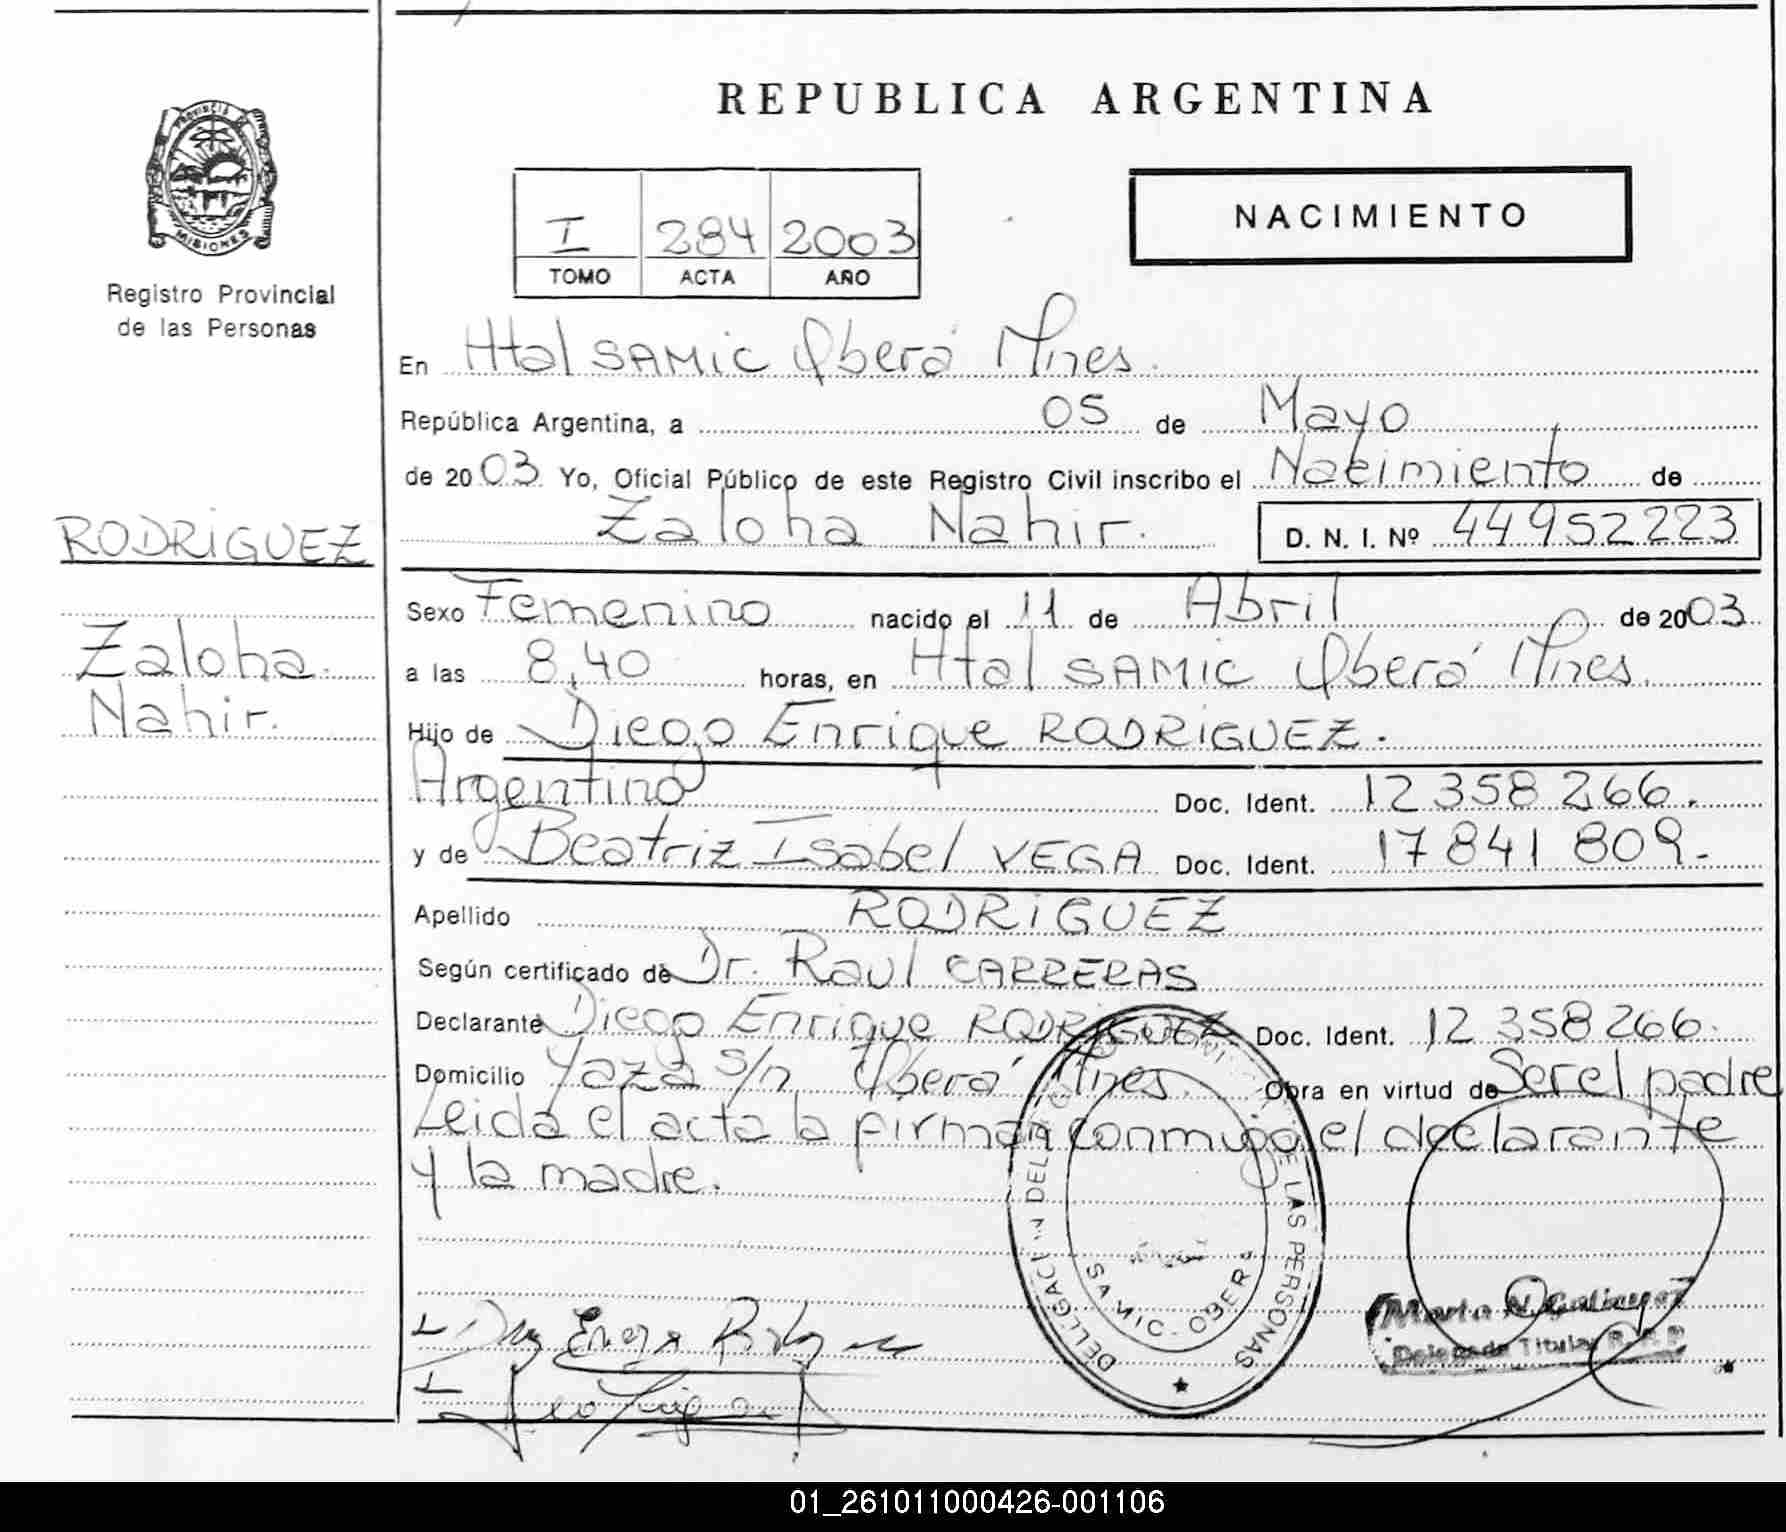 REPUBLICA ARGENTINA
PROVINCIA DE
MISIONES
Registro Provincial
de las Personas
I 284 2003
TOMO ACTA AÑO
NACIMIENTO
En Htal SAMic Oberá Mnes.
República Argentina, a 05 de Mayo
de 2003 Yo, Oficial Público de este Registro Civil inscribo el Nacimiento de
Zaloha Nahir. D. N. I. Nº 44952223
RODRIGUEZ
Zaloha
Nahir.
Sexo Femenino nacido el 11 de Abril de 2003
a las 8,40 horas, en Htal SAMIC Oberá Mnes.
Hijo de Diego Enrique RODRIGUEZ.
Argentino Doc. Ident. 12 358 266.
y de Beatriz Isabel VEGA Doc. Ident. 17 841 809.
Apellido RODRIGUEZ
Según certificado de Dr. Raul CARRERAS
Declarante Diego Enrique RODRIGUEZ Doc. Ident. 12 358 266.
Domicilio Yazá s/n Oberá Mnes. Obra en virtud de Ser el padre
Leida el acta la firman conmigo el declarante
y la madre.
DE LAS PERSONAS
SAMIC - OBERA
Delegada Titular R.P.P
01_261011000426-001106